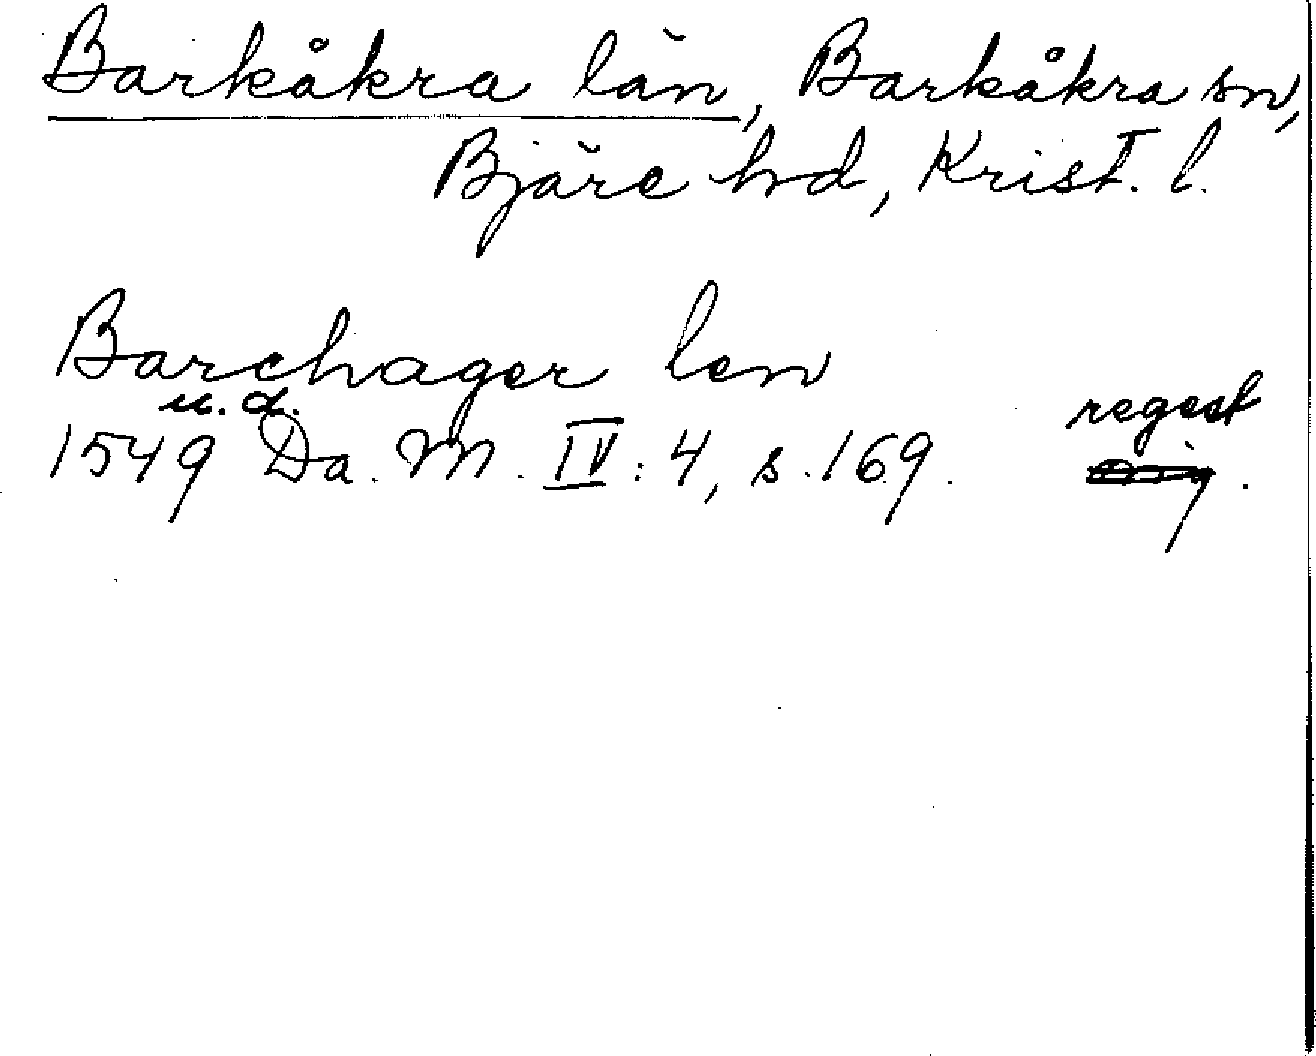 Barkåkra län, Barkåkra sn,
Bjäre hd, Krist. l.
Barchager len
u. d. regest
1549 Da. M. IV: 4, s. 169. orig.